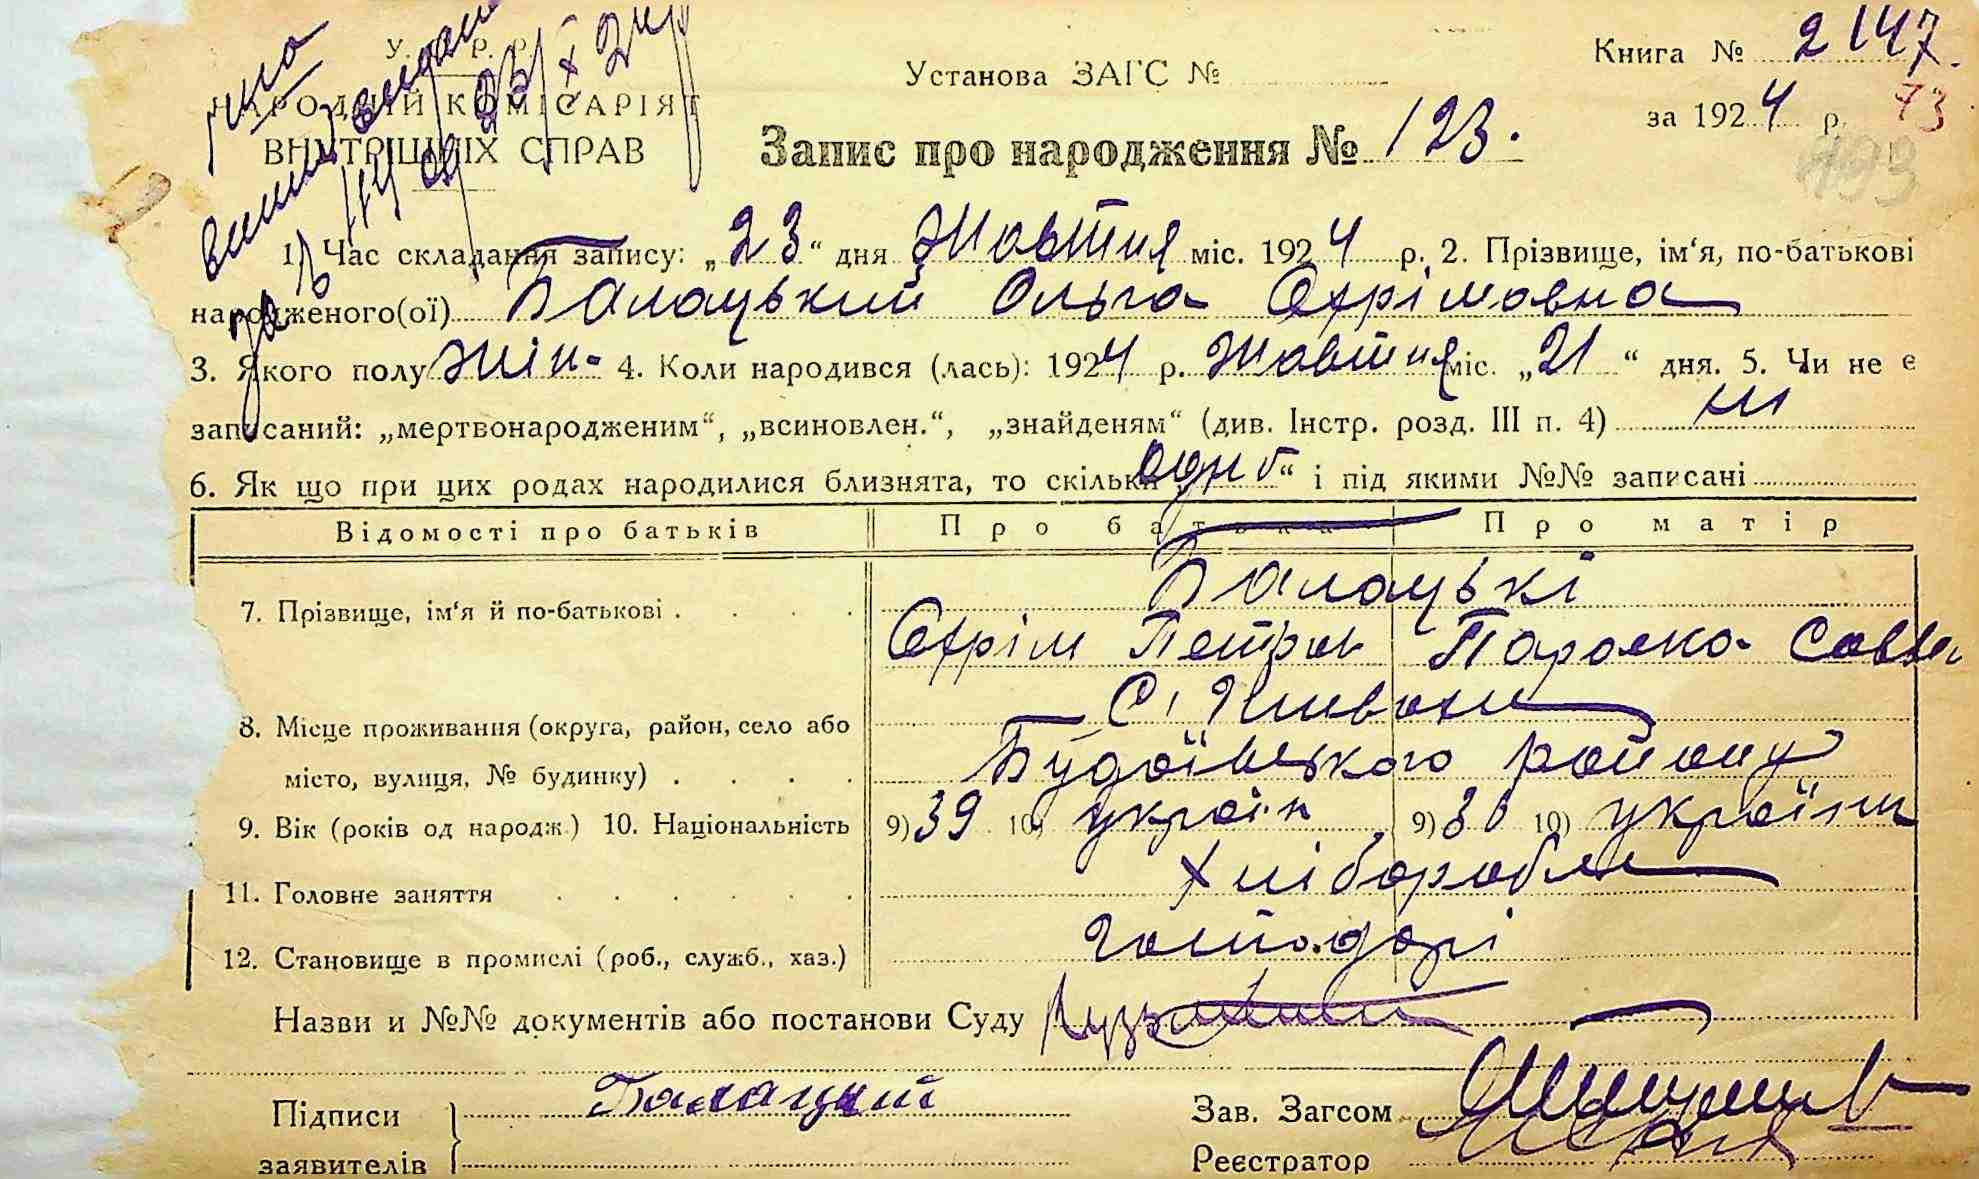 У. С. Р. Р.
НАРОДНІЙ КОМІСАРІЯТ
ВНУТРІШНІХ СПРАВ
Установа ЗАГС №
Книга № 2147.
за 1924 р. 73
193
Запис про народження № 123.
1. Час складання запису: „23“ дня Жовтня міс. 1924 р. 2. Прізвище, ім‘я, по-батькові
народженого(ої) Балацький Ольга Охрімовна
3. Якого полу жін. 4. Коли народився (лась): 1924 р. Жовтня міс. „21“ дня. 5. Чи не є
записаний: „мертвонародженим“, „всиновлен.“, „знайденям“ (див. Інстр. розд. III п. 4) ні
6. Як що при цих родах народилися близнята, то скільки „одно“ і під якими №№ записані
Відомості про батьків Про батька Про матір
Балацькі
7. Прізвище, ім‘я й по-батькові
Охрім Петров Параска Савве
8. Місце проживання (округа, район, село або
місто, вулиця, № будинку)
Будаївського району
9. Вік (років од народж.) 10. Національність 9) 39 10) україн 9) 30 10) україн
11. Головне заняття Хлібороби
12. Становище в промислі (роб., служб., хаз.) господарі
Назви и №№ документів або постанови Суду
Підписи Балацкий Зав. Загсом
заявителів Реєстратор